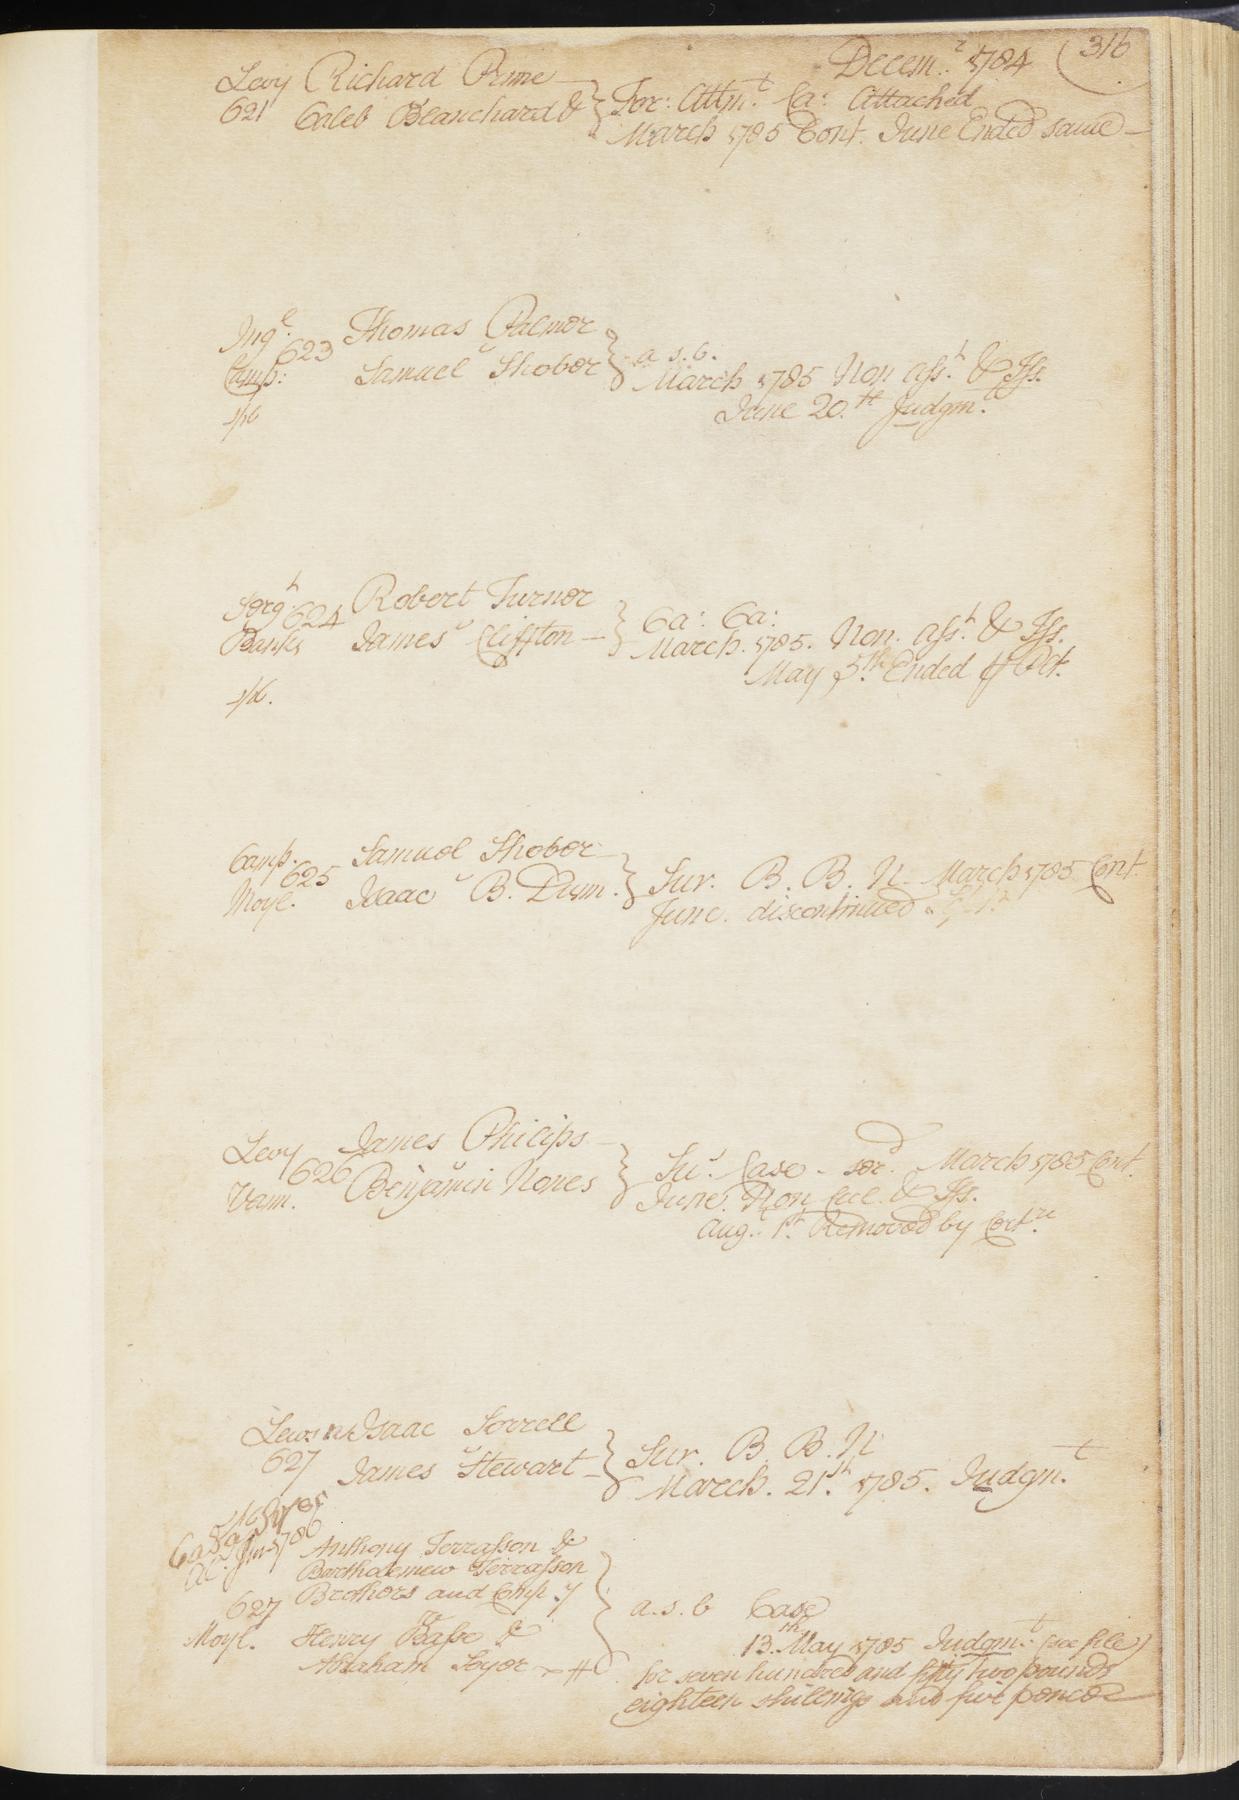 Decem.r 1784 316
Levy Richard Prime
621 Caleb Blanchard &
For: Attm.t Ca: Attached
March 1785 Cont. June Ended same
Ing.l Thomas Palmer
623
Camp: Samuel Shober
a s. b.
March 1785 Non ass.t & Iss.
June 20.th Judgm.t
Serg.t Robert Turner
624
Banks James Cliffton
Ca: Ca:
March. 1785. Non. ass.t & Iss.
May 5.th Ended Oct.
Camp. Samuel Shober
625
Moyl. Isaac B. Dunn.
Sur. B. B. N. March 1785 Cont.
June. discontinued
Levy James Philips
626
Vann. Benjamin Nones
Su.r Case - ser.d March 1785 Cont.
June. Non Cul. & Iss.
Aug.t 1.st Removed by Cert.re
Isaac Sorrell
627 James Stewart
Sur. B. B. N
March. 21.st 1785. Judgm.t
Anthony Terrasson &
Bartholemew Terrasson
Brothers and Comp.y
627
Moyl. Henry Basse &
Abraham Soyer
a. s. b Case
13.th May 1785 Judgm.t (see file)
for seven hundred and fifty two pounds
eighteen shillings and five pence